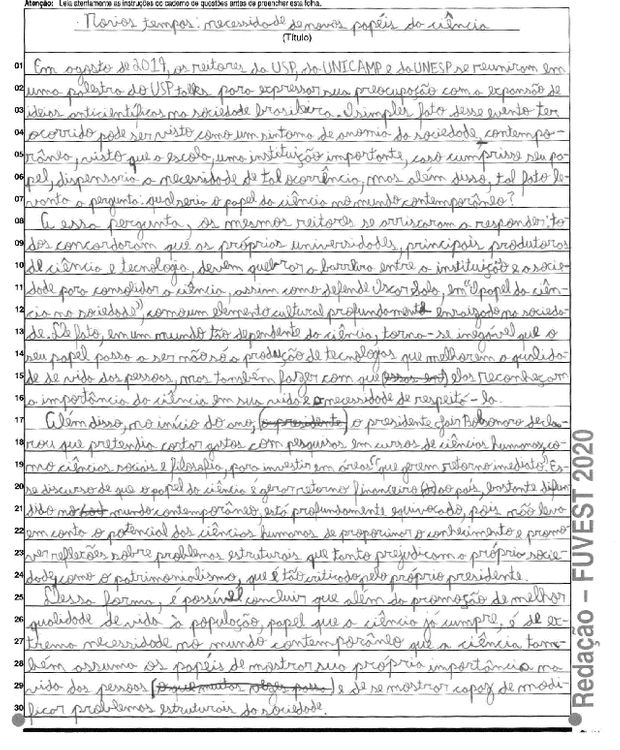 Atenção: Leia atentamente as instruções do caderno de questões antes de preencher esta folha.
Novos tempos: necessidade de novos papéis da ciência
(Título)
01 Em agosto de 2019, os reitores da USP, da UNICAMP e da UNESP se reuniram em
02 uma palestra do USP talks para expressar sua preocupação com a expansão de
03 ideias anticientíficas na sociedade brasileira. O simples fato desse evento ter
04 ocorrido pode ser visto como um sintoma de anomia da sociedade contempo-
05 rânea, visto que a escola, uma instituição importante, caso cumprisse seu pa-
06 pel, dispensaria a necessidade de tal ocorrência, mas além disso, tal fato le-
07 vanta a pergunta: qual seria o papel da ciência no mundo contemporâneo?
08 A essa pergunta, os mesmos reitores se arriscaram a responder: to-
09 dos concordaram que as próprias universidades, principais produtoras
10 de ciência e tecnologia, devem quebrar a barreira entre a instituição e a socie-
11 dade para consolidar a ciência, assim como defende Oscar Sala, em "O papel da ciên-
12 cia na sociedade", como um elemento cultural profundamente enraizado na socieda-
13 de. De fato, em um mundo tão dependente da ciência, torna-se inegável que o
14 seu papel passa a ser não só a produção de tecnologias que melhorem a qualida-
15 de de vida das pessoas, mas também fazer com que (essas em) elas reconheçam
16 a importância da ciência em sua vida e a necessidade de respeitá-la.
17 Além disso, no início do ano, (o presidente) o presidente Jair Bolsonaro decla-
18 rou que pretendia cortar gastos com pesquisas em cursos de ciências humanas, co-
19 mo ciências sociais e filosofia, para investir em áreas "que gerem retorno imediato". Es-
20 se discurso de que o papel da ciência é gerar retorno financeiro ao país, bastante difun-
21 dido no mundo contemporâneo, está profundamente equivocado, pois não leva
22 em conta o potencial das ciências humanas de proporcionar o conhecimento e promo-
23 ver reflexões sobre problemas estruturais que tanto prejudicam a própria socie-
24 dade, como o patrimonialismo, que é tão criticado pelo próprio presidente.
25 Dessa forma, é possível concluir que além da promoção de melhor
26 qualidade de vida à população, papel que a ciência já cumpre, é de ex-
27 trema necessidade no mundo contemporâneo que a ciência tam-
28 bém assuma os papéis de mostrar sua própria importância na
29 vida das pessoas e de se mostrar capaz de modi-
30 ficar problemas estruturais da sociedade.
Redação – FUVEST 2020